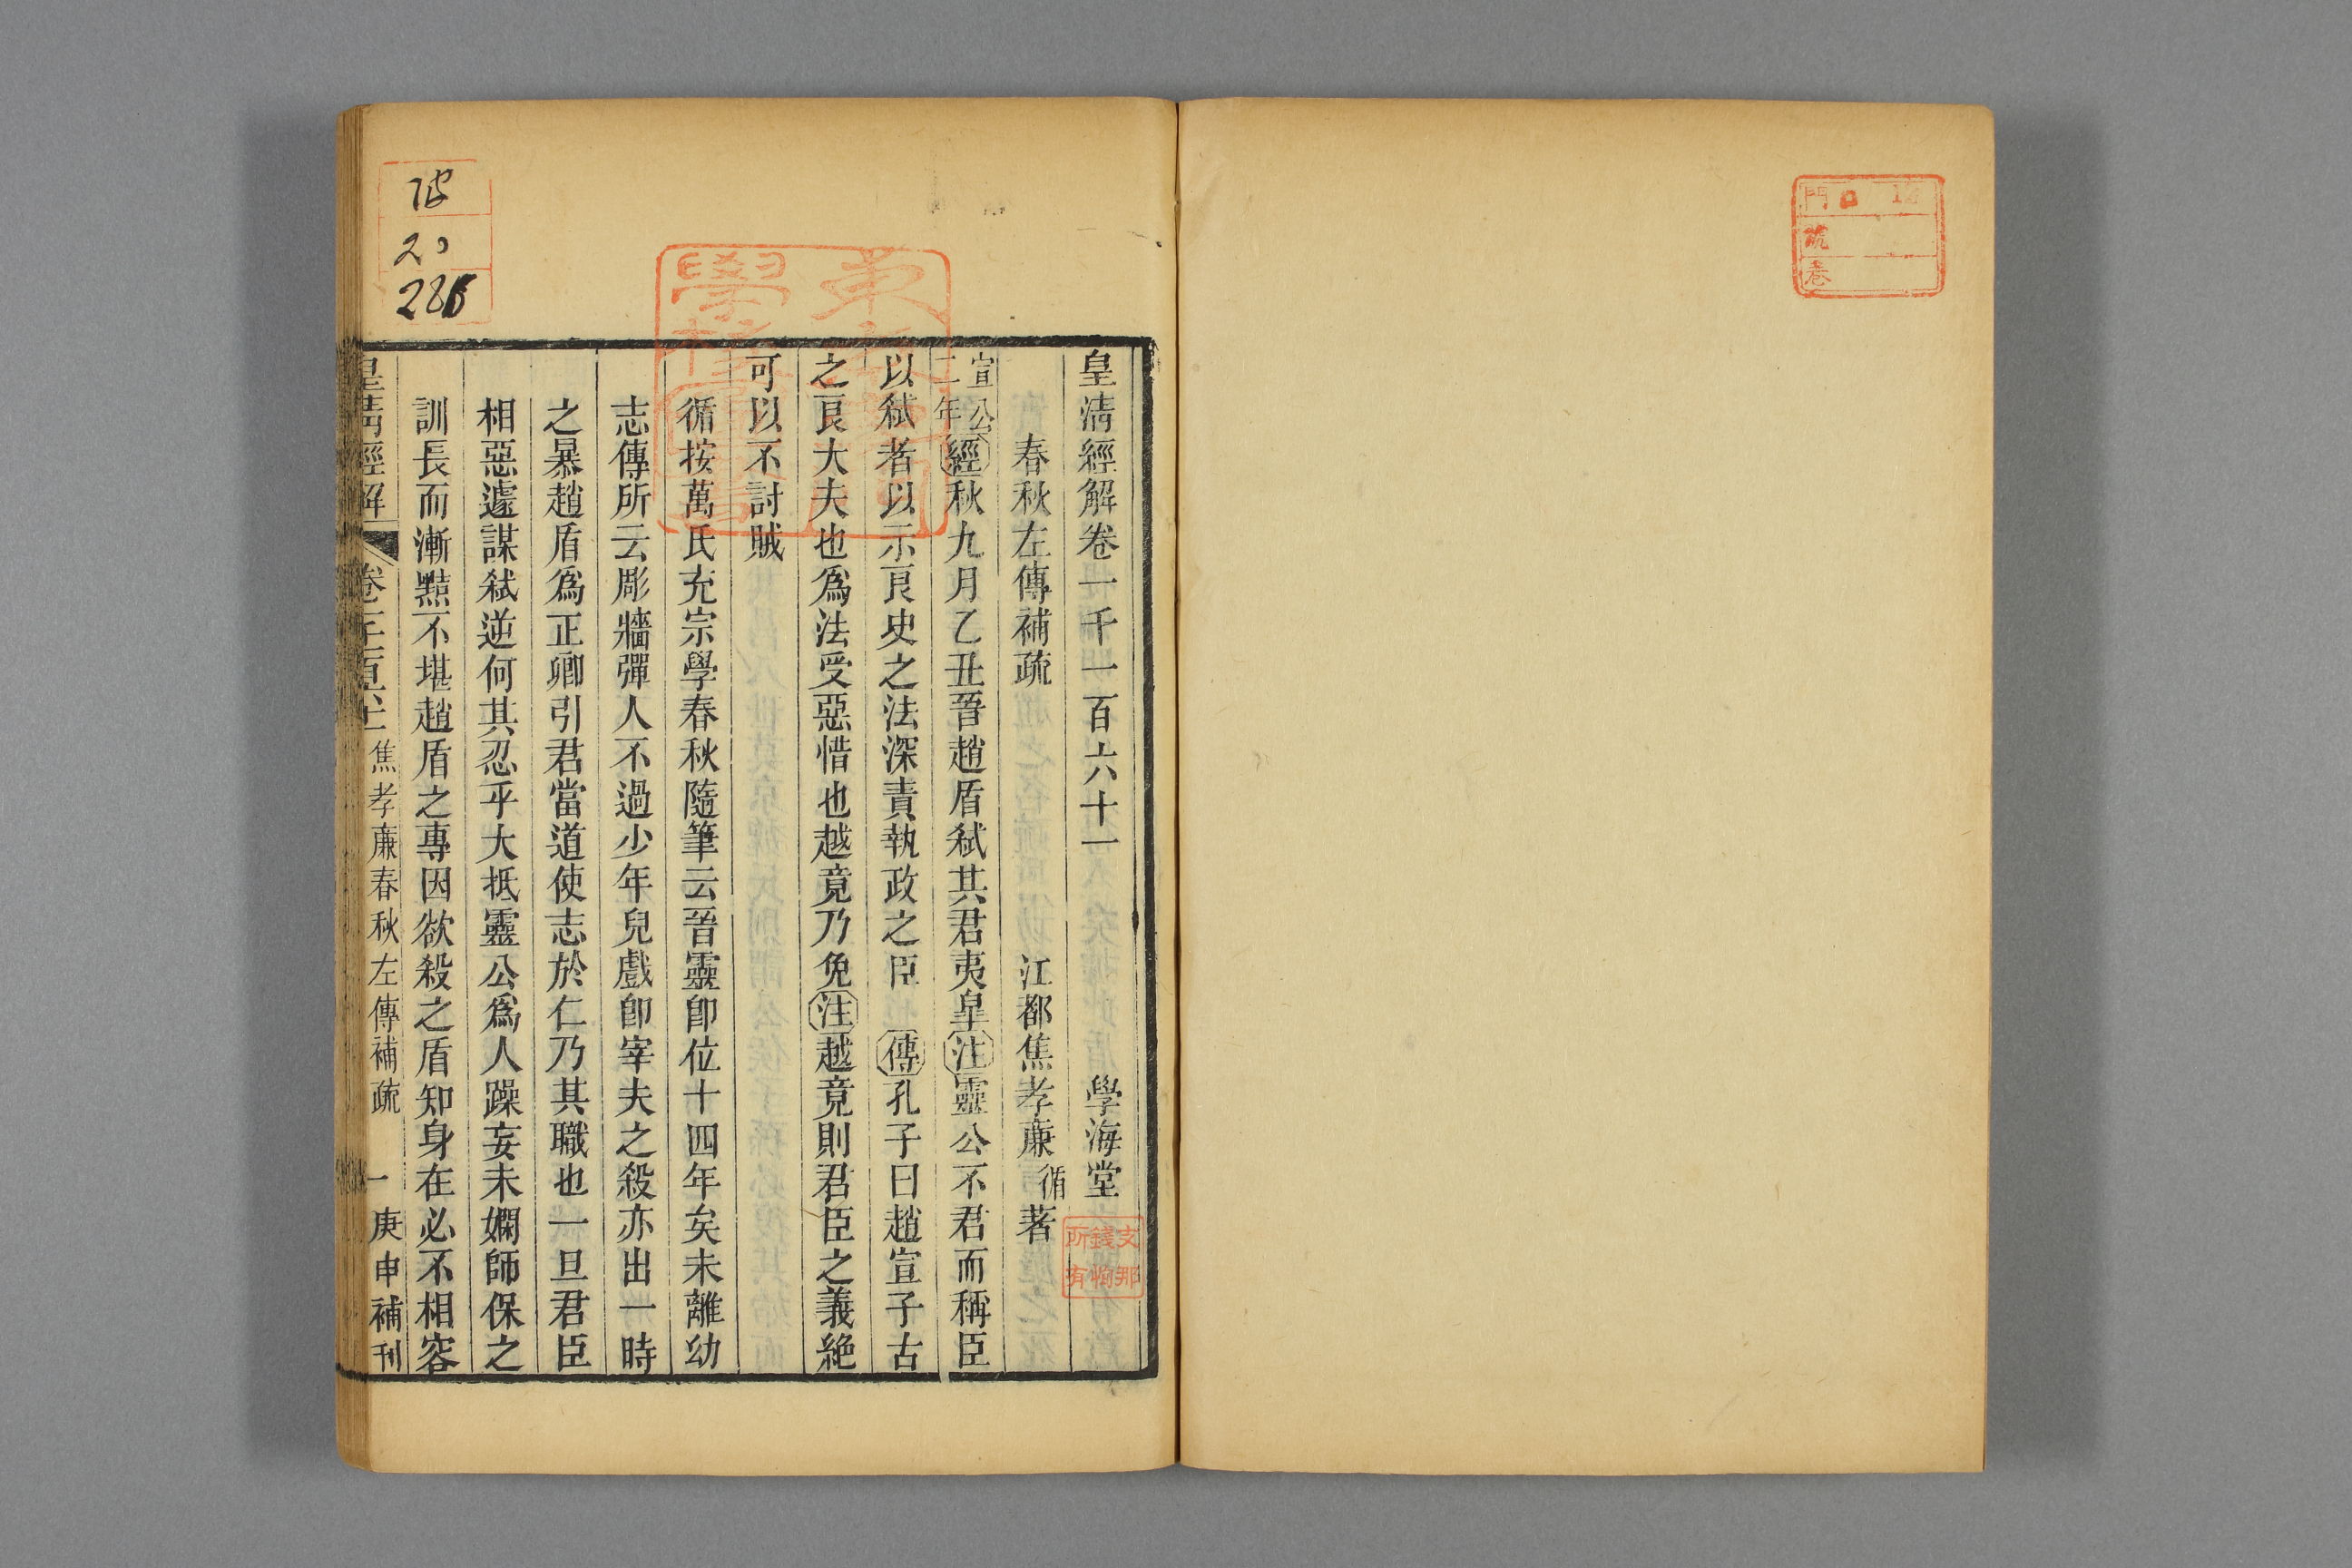 皇清經解卷一千一百六十一 學海堂
春秋左傳補疏 江都焦孝廉循著
宣公二年經秋九月乙丑晉趙盾弒其君夷皐注靈公不君而稱臣
以弒者以示良史之法深責執政之臣 傳孔子曰趙宣子古
之良大夫也爲法受惡惜也越竟乃免注越竟則君臣之義絶
可以不討賊
循按萬氏充宗學春秋隨筆云晉靈卽位十四年矣未離幼
志傳所云彫牆彈人不過少年兒戲卽宰夫之殺亦出一時
之暴趙盾爲正卿引君當道使志於仁乃其職也一旦君臣
相惡遽謀弒逆何其忍乎大抵靈公爲人躁妄未嫻師保之
訓長而漸黠不堪趙盾之專因欲殺之盾知身在必不相容
皇清經解 焦孝廉春秋左傳補疏 一 庚申補刊
支那錢恂所有
20
門 號 巻